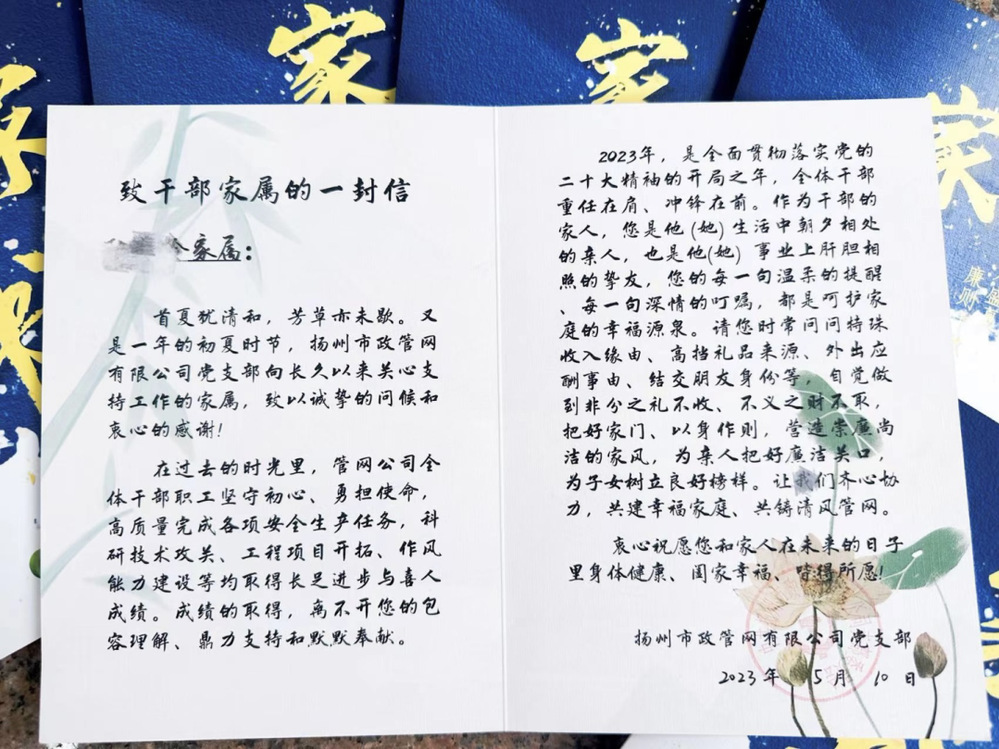 家
家
家
廉
致干部家属的一封信
家属：
首夏犹清和，芳草亦未歇。又
是一年的初夏时节，扬州市政管网
有限公司党支部向长久以来关心支
持工作的家属，致以诚挚的问候和
衷心的感谢！
在过去的时光里，管网公司全
体干部职工坚守初心、勇担使命，
高质量完成各项安全生产任务，科
研技术攻关、工程项目开拓、作风
能力建设等均取得长足进步与喜人
成绩。成绩的取得，离不开您的包
容理解、鼎力支持和默默奉献。
2023年，是全面贯彻落实党的
二十大精袖的开局之年，全体干部
重任在肩、冲锋在前。作为干部的
家人，您是他(她)生活中朝夕相处
的亲人，也是他(她)事业上肝胆相
照的挚友，您的每一句温柔的提醒
、每一句深情的叮嘱，都是呵护家
庭的幸福源泉。请您时常问问特殊
收入缘由、高档礼品来源、外出应
酬事由、结交朋友身份等，自觉做
到非分之礼不收、不义之财不取，
把好家门、以身作则，营造崇廉尚
洁的家风，为亲人把好廉洁关口，
为子女树立良好榜样。让我们齐心协
力，共建幸福家庭、共铸清风管网。
衷心祝愿您和家人在未来的日子
里身体健康、阖家幸福、皆得所愿！
扬州市政管网有限公司党支部
2023年 5月 10日